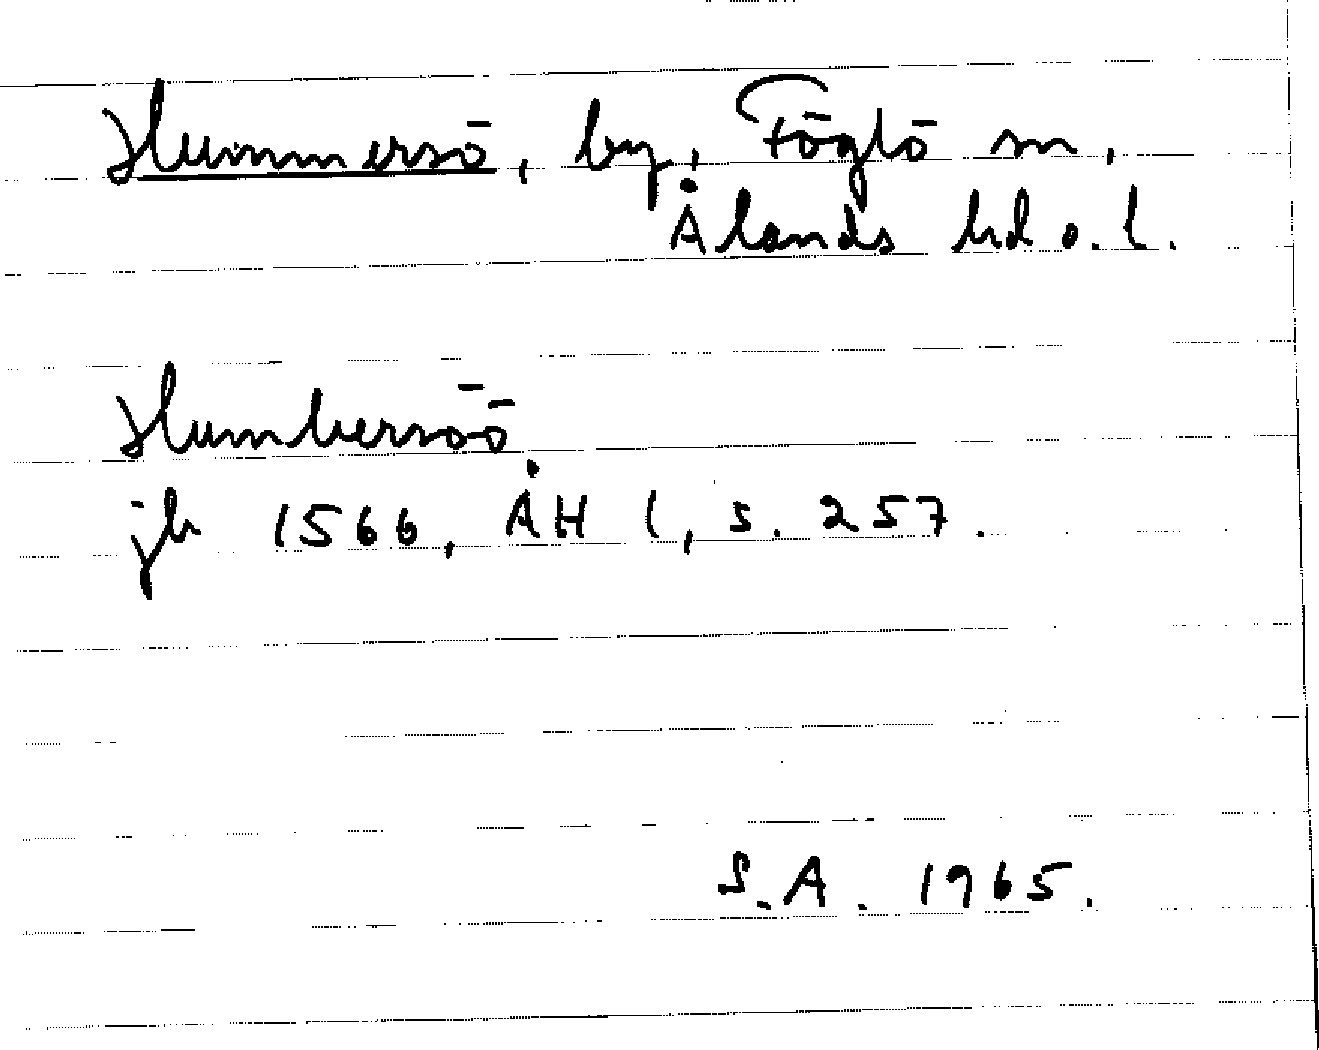 Hummersö, by, Föglö sn,
Ålands hd o. l.
Humbersöö
jb 1566, ÅH 1, s. 257.
S.A. 1965.